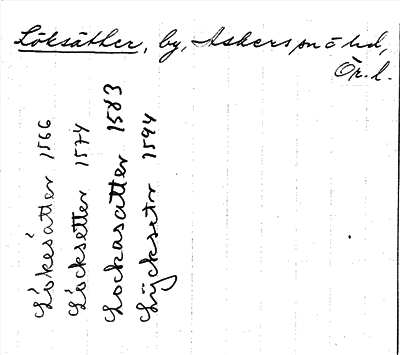 Löksätter, by, Askers sn o hd,
Ör. l.
Lökesätter 1566
Löcksetter 1574
Lockasatter 1583
Lücksetr 1594